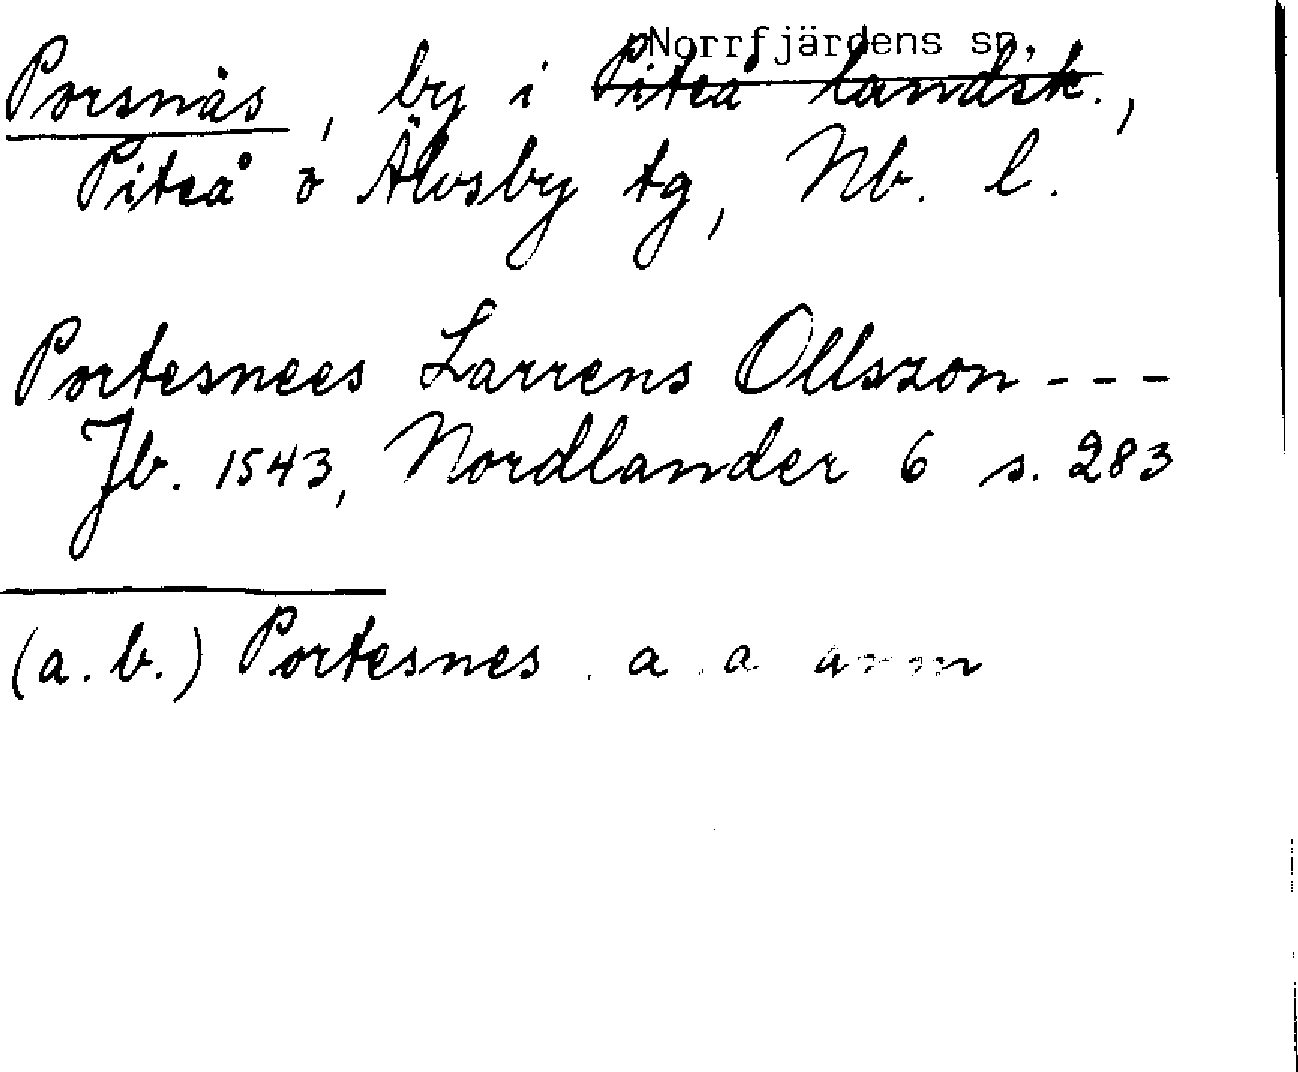 Norrfjärdens sn,
Porsnäs, by i Piteå landsk.,
Piteå o Älvsby tg, Nb. l.
Portesnees Larrens Ollszon - - -
Jb. 1543, Nordlander 6 s. 283
(a.b.) Portesnes. a.a anm